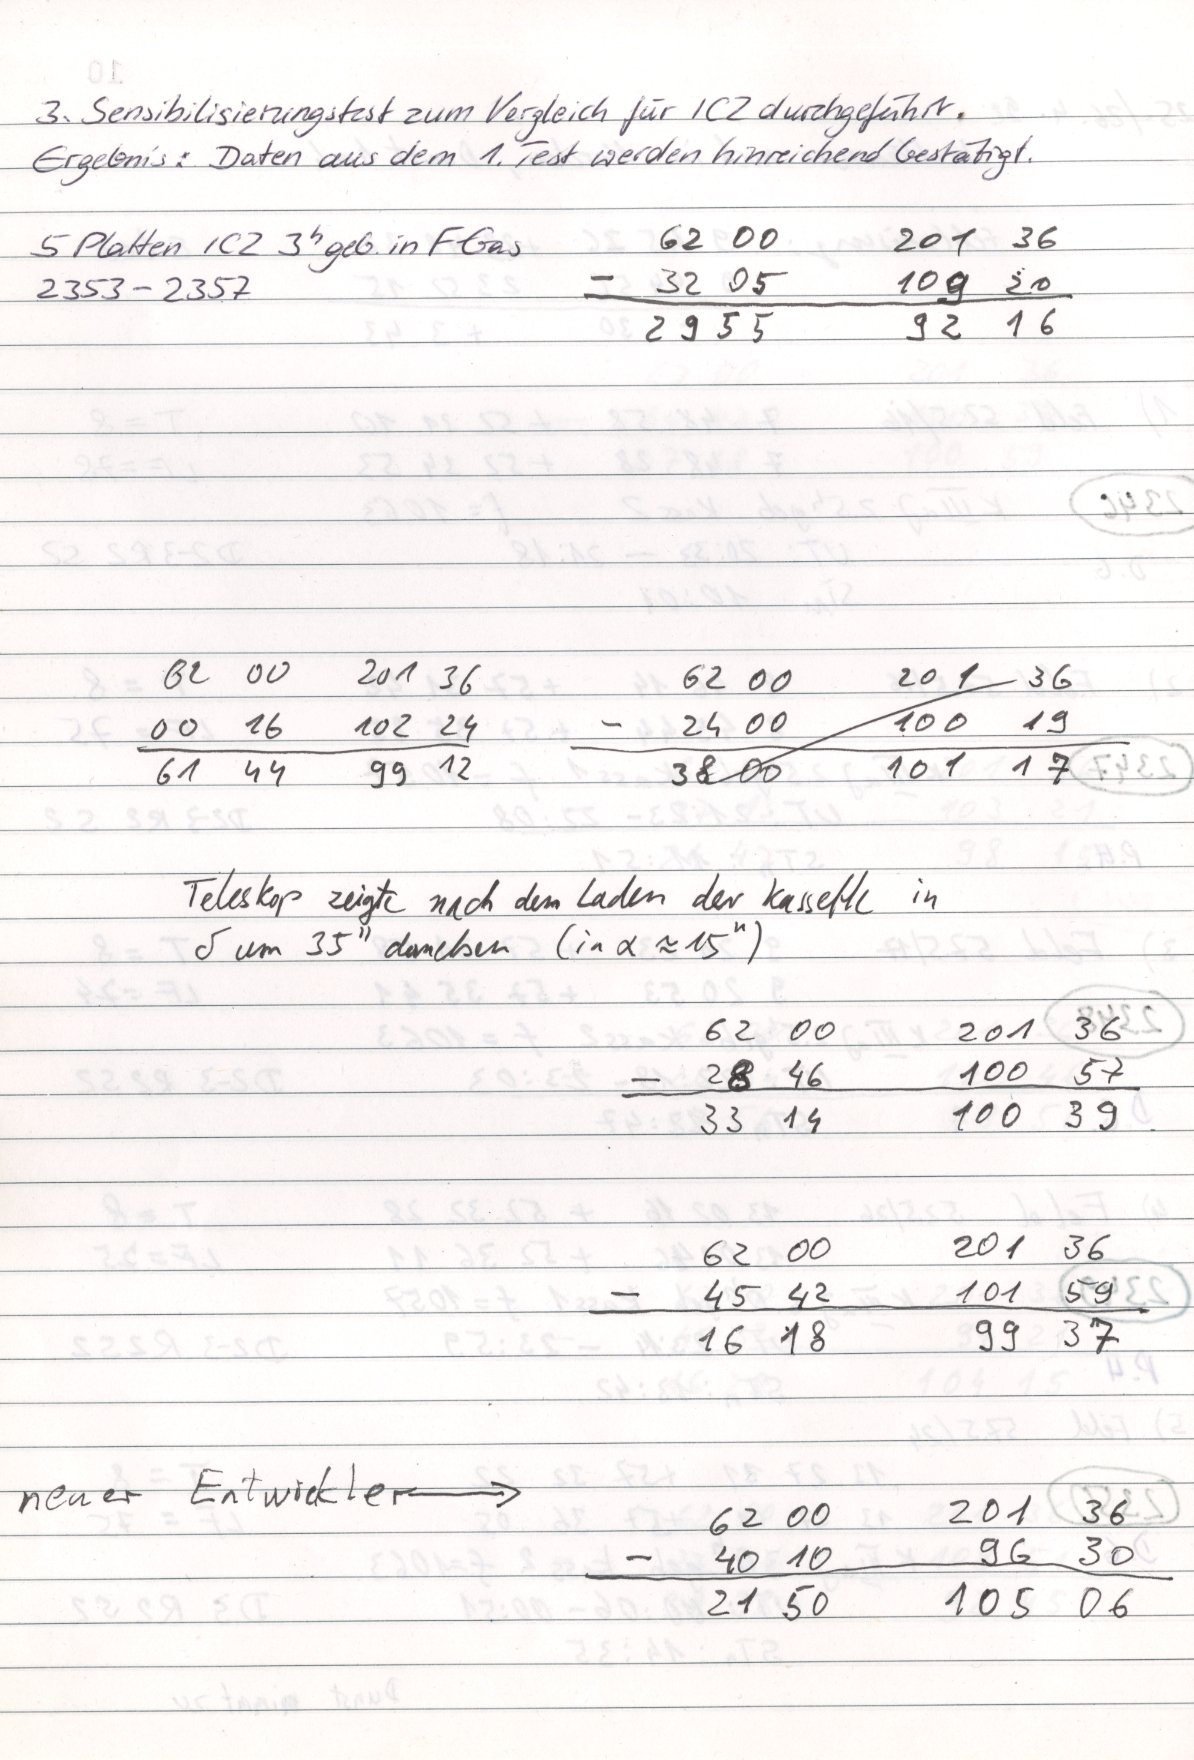 3. Sensibilisierungstest zum Vergleich für ICZ durchgeführt.
Ergebnis: Daten aus dem 1. Test werden hinreichend bestätigt.
5 Platten ICZ 3h geb. in FGas 62 00 201 36
2353 - 2357 - 32 05 109 20
29 55 92 16
62 00 201 36 62 00 201 36
00 16 102 24 - 24 00 100 19
61 44 99 12 38 00 101 17
Teleskop zeigte nach dem Laden der Kassette in
δ um 35" daneben (in α ≈ 15")
62 00 201 36
- 28 46 100 57
33 14 100 39
62 00 201 36
- 45 42 101 59
16 18 99 37
neuer Entwickler →
62 00 201 36
- 40 10 96 30
21 50 105 06